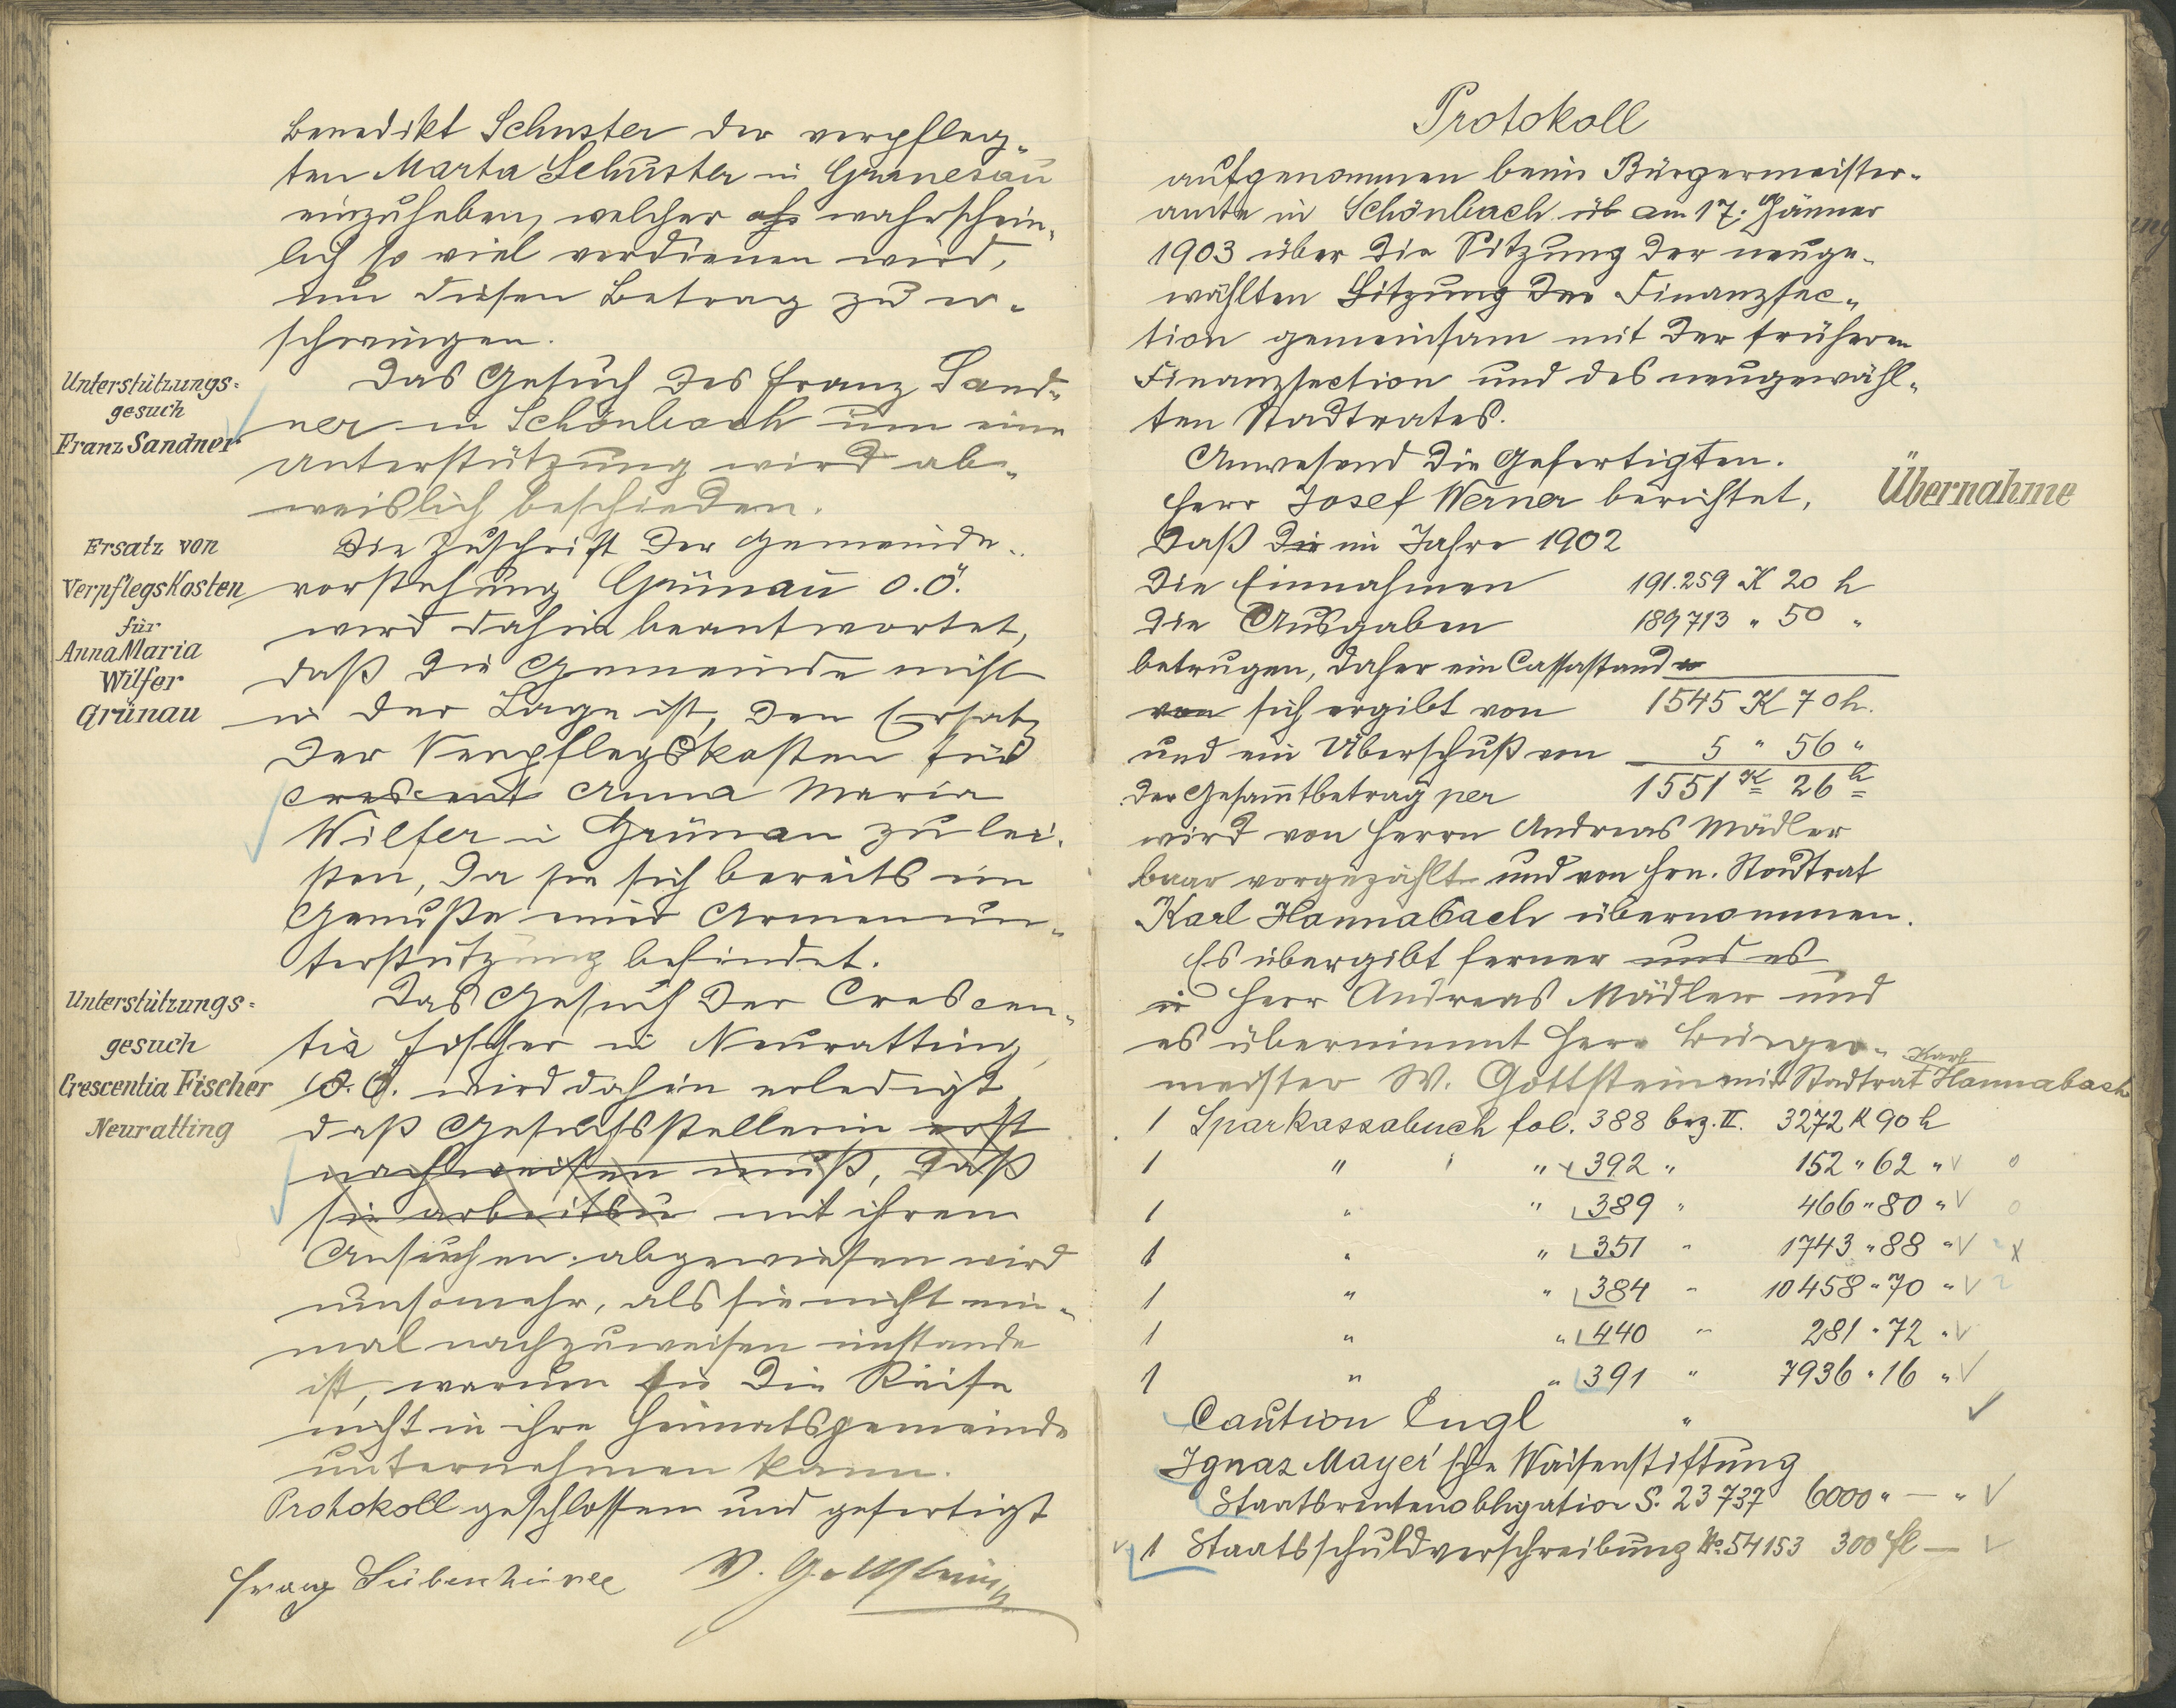 Benedikt Schuster der verpfleg-
ten Marta Schuster in Granesau
einzuheben, welcher wahrschein-
lich so viel verdienen wird,
um diesen Betrag zu er-
schwingen.
Unterstützungs-
gesuch
Franz Sandner
Das Gesuch des Franz Sand-
ner in Schönbach um eine
Unterstützung wird ab-
weislich beschieden.
Ersatz von
Verpflegskosten
für
Anna Maria
Wilfer
Grünau
Die Zuschrift der Gemeinde-
vorstehung Grünau O.Ö.
wird dahin beantwortet,
daß die Gemeinde nicht
in der Lage ist, den Ersatz
der Verpflegskosten für
Crescent Anna Maria
Wilfer in Grünau zu lei-
sten, da sie sich bereits im
Genuße einer Armenun-
terstützung befindet.
Unterstützungs-
gesuch
Crescentia Fischer
Neuratting
Das Gesuch der Crescen-
tia Fischer in Neuratting
O.Ö. wird dahin erledigt,
daß Gesuchsstellerin erst
nachweisen muß, daß
sie arbeitsu mit ihrem
Ansuchen abgewiesen wird
umsomehr, als sie nicht ein-
mal nachzuweisen imstande
ist, warum sie die Reise
nicht in ihre Heimatsgemeinde
unternehmen kann.
Protokoll geschlossen und gefertigt
Franz W. Gottstein
Protokoll
aufgenommen beim Bürgermeister-
amte in Schönbach üb am 17. Jänner
1903 über die Sitzung der neuge-
wählten Sitzung der Finanzsec-
tion gemeinsam mit der früheren
Finanzsection und des neugewähl-
ten Stadtrates.
Anwesend die Gefertigten.
Übernahme
Herr Josef Werner berichtet,
daß die im Jahre 1902
die Einnahmen 191.259 K 20 h
die Ausgaben 189713 " 50 "
betrugen, daher ein Cassastand
von sich ergibt von 1545 K 70 h.
und ein Überschuß von 5 " 56 "
der Gesammtbetrag per 1551 K 26 h
wird von Herrn Andreas Mädler
baar vorgezählt und von Hrn. Stadtrat
Karl Hannabach übernommen.
Es übergibt ferner und es
Herr Andreas Mädler und
es übernimmt Herr Bürger-
meister W. Gottstein mit Stadtrat Karl Hannabach
1 Sparkassabuch fol. 388 bez. II. 3272 K 90 h
1 " " 392 " 152 " 62 "
1 " " 389 " 466 " 80 "
1 " " 351 " 1743 " 88 "
1 " " 384 " 10458 " 70 "
1 " " 440 " 281 " 72 "
1 " " 391 " 7936 " 16 "
Caution Engl "
Ignaz Mayer'sche Waisenstiftung
Staatsrentenobligation S. 23737 6000 " — "
1 Staatsschuldverschreibung No. 54153 300 fl —